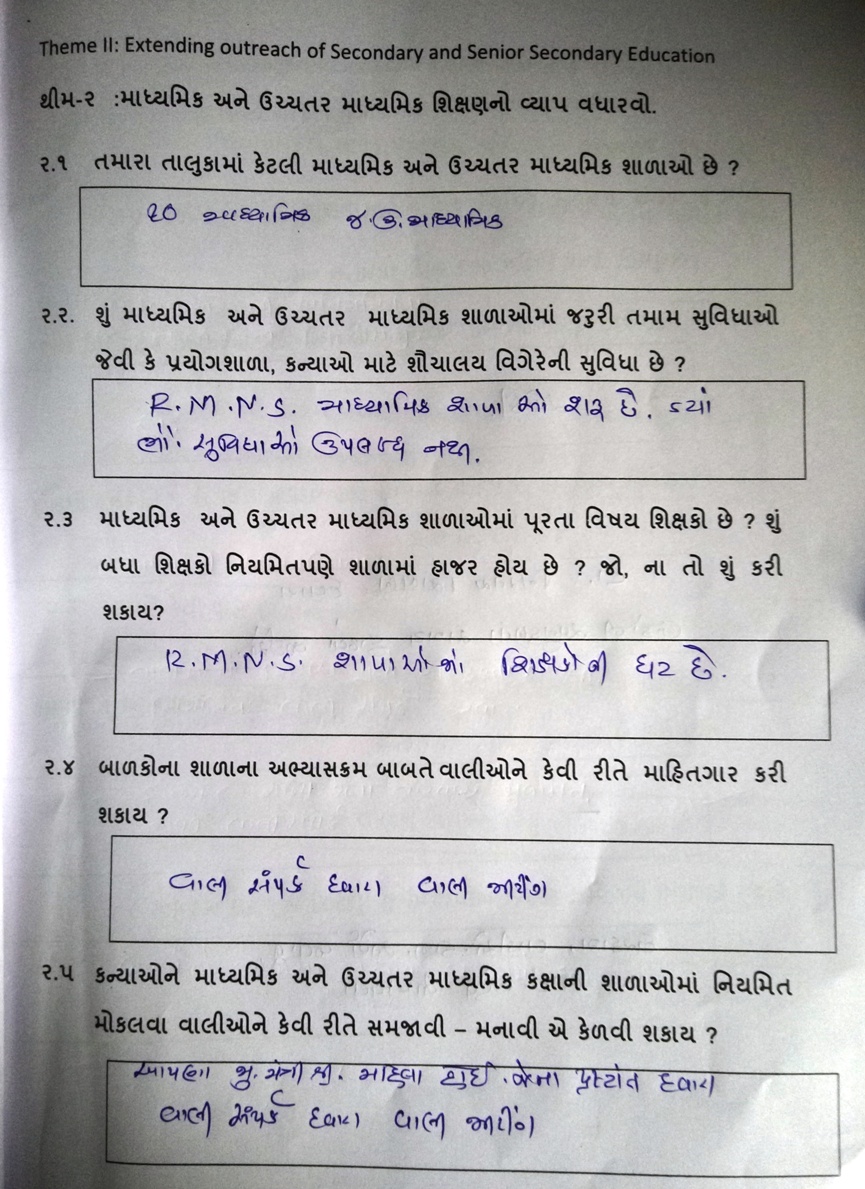 Theme II: Extending outreach of Secondary and Senior Secondary Education
થીમ-ર :માધ્યમિક અને ઉચ્ચતર માધ્યમિક શિક્ષણનો વ્યાપ વધારવો.
ર.૧ તમારા તાલુકામાં કેટલી માધ્યમિક અને ઉચ્ચતર માધ્યમિક શાળાઓ છે ?
૨૦ માધ્યામિક જ.ઉ.માધ્યામિક
ર.ર. શું માધ્યમિક અને ઉચ્ચતર માધ્યમિક શાળાઓમાં જરુરી તમામ સુવિધાઓ
જેવી કે પ્રયોગશાળા, કન્યાઓ માટે શૌચાલય વિગેરેની સુવિધા છે ?
R.M.N.S. માધ્યામિક શાળા ઓ શરૂ છે. જ્યાં
સુવિધાઓ ઉપલબ્ધ નથી.
ર.૩ માધ્યમિક અને ઉચ્ચતર માધ્યમિક શાળાઓમાં પૂરતા વિષય શિક્ષકો છે ? શું
બધા શિક્ષકો નિયમિતપણે શાળામાં હાજર હોય છે ? જો, ના તો શું કરી
શકાય?
R.M.N.S. શાળાઓમાં શિક્ષકોની ઘટ છે.
ર.૪ બાળકોના શાળાના અભ્યાસક્રમ બાબતે વાલીઓને કેવી રીતે માહિતગાર કરી
શકાય ?
વાલી સંપર્ક દ્વારા વાલી મીટીંગ
ર.૫ કન્યાઓને માધ્યમિક અને ઉચ્ચતર માધ્યમિક કક્ષાની શાળાઓમાં નિયમિત
મોકલવા વાલીઓને કેવી રીતે સમજાવી – મનાવી એ કેળવી શકાય ?
આપણા મુ.મંત્રી શ્રી. મહિલા દ્વારા
વાલી સંપર્ક દ્વારા વાલી મીટીંગ